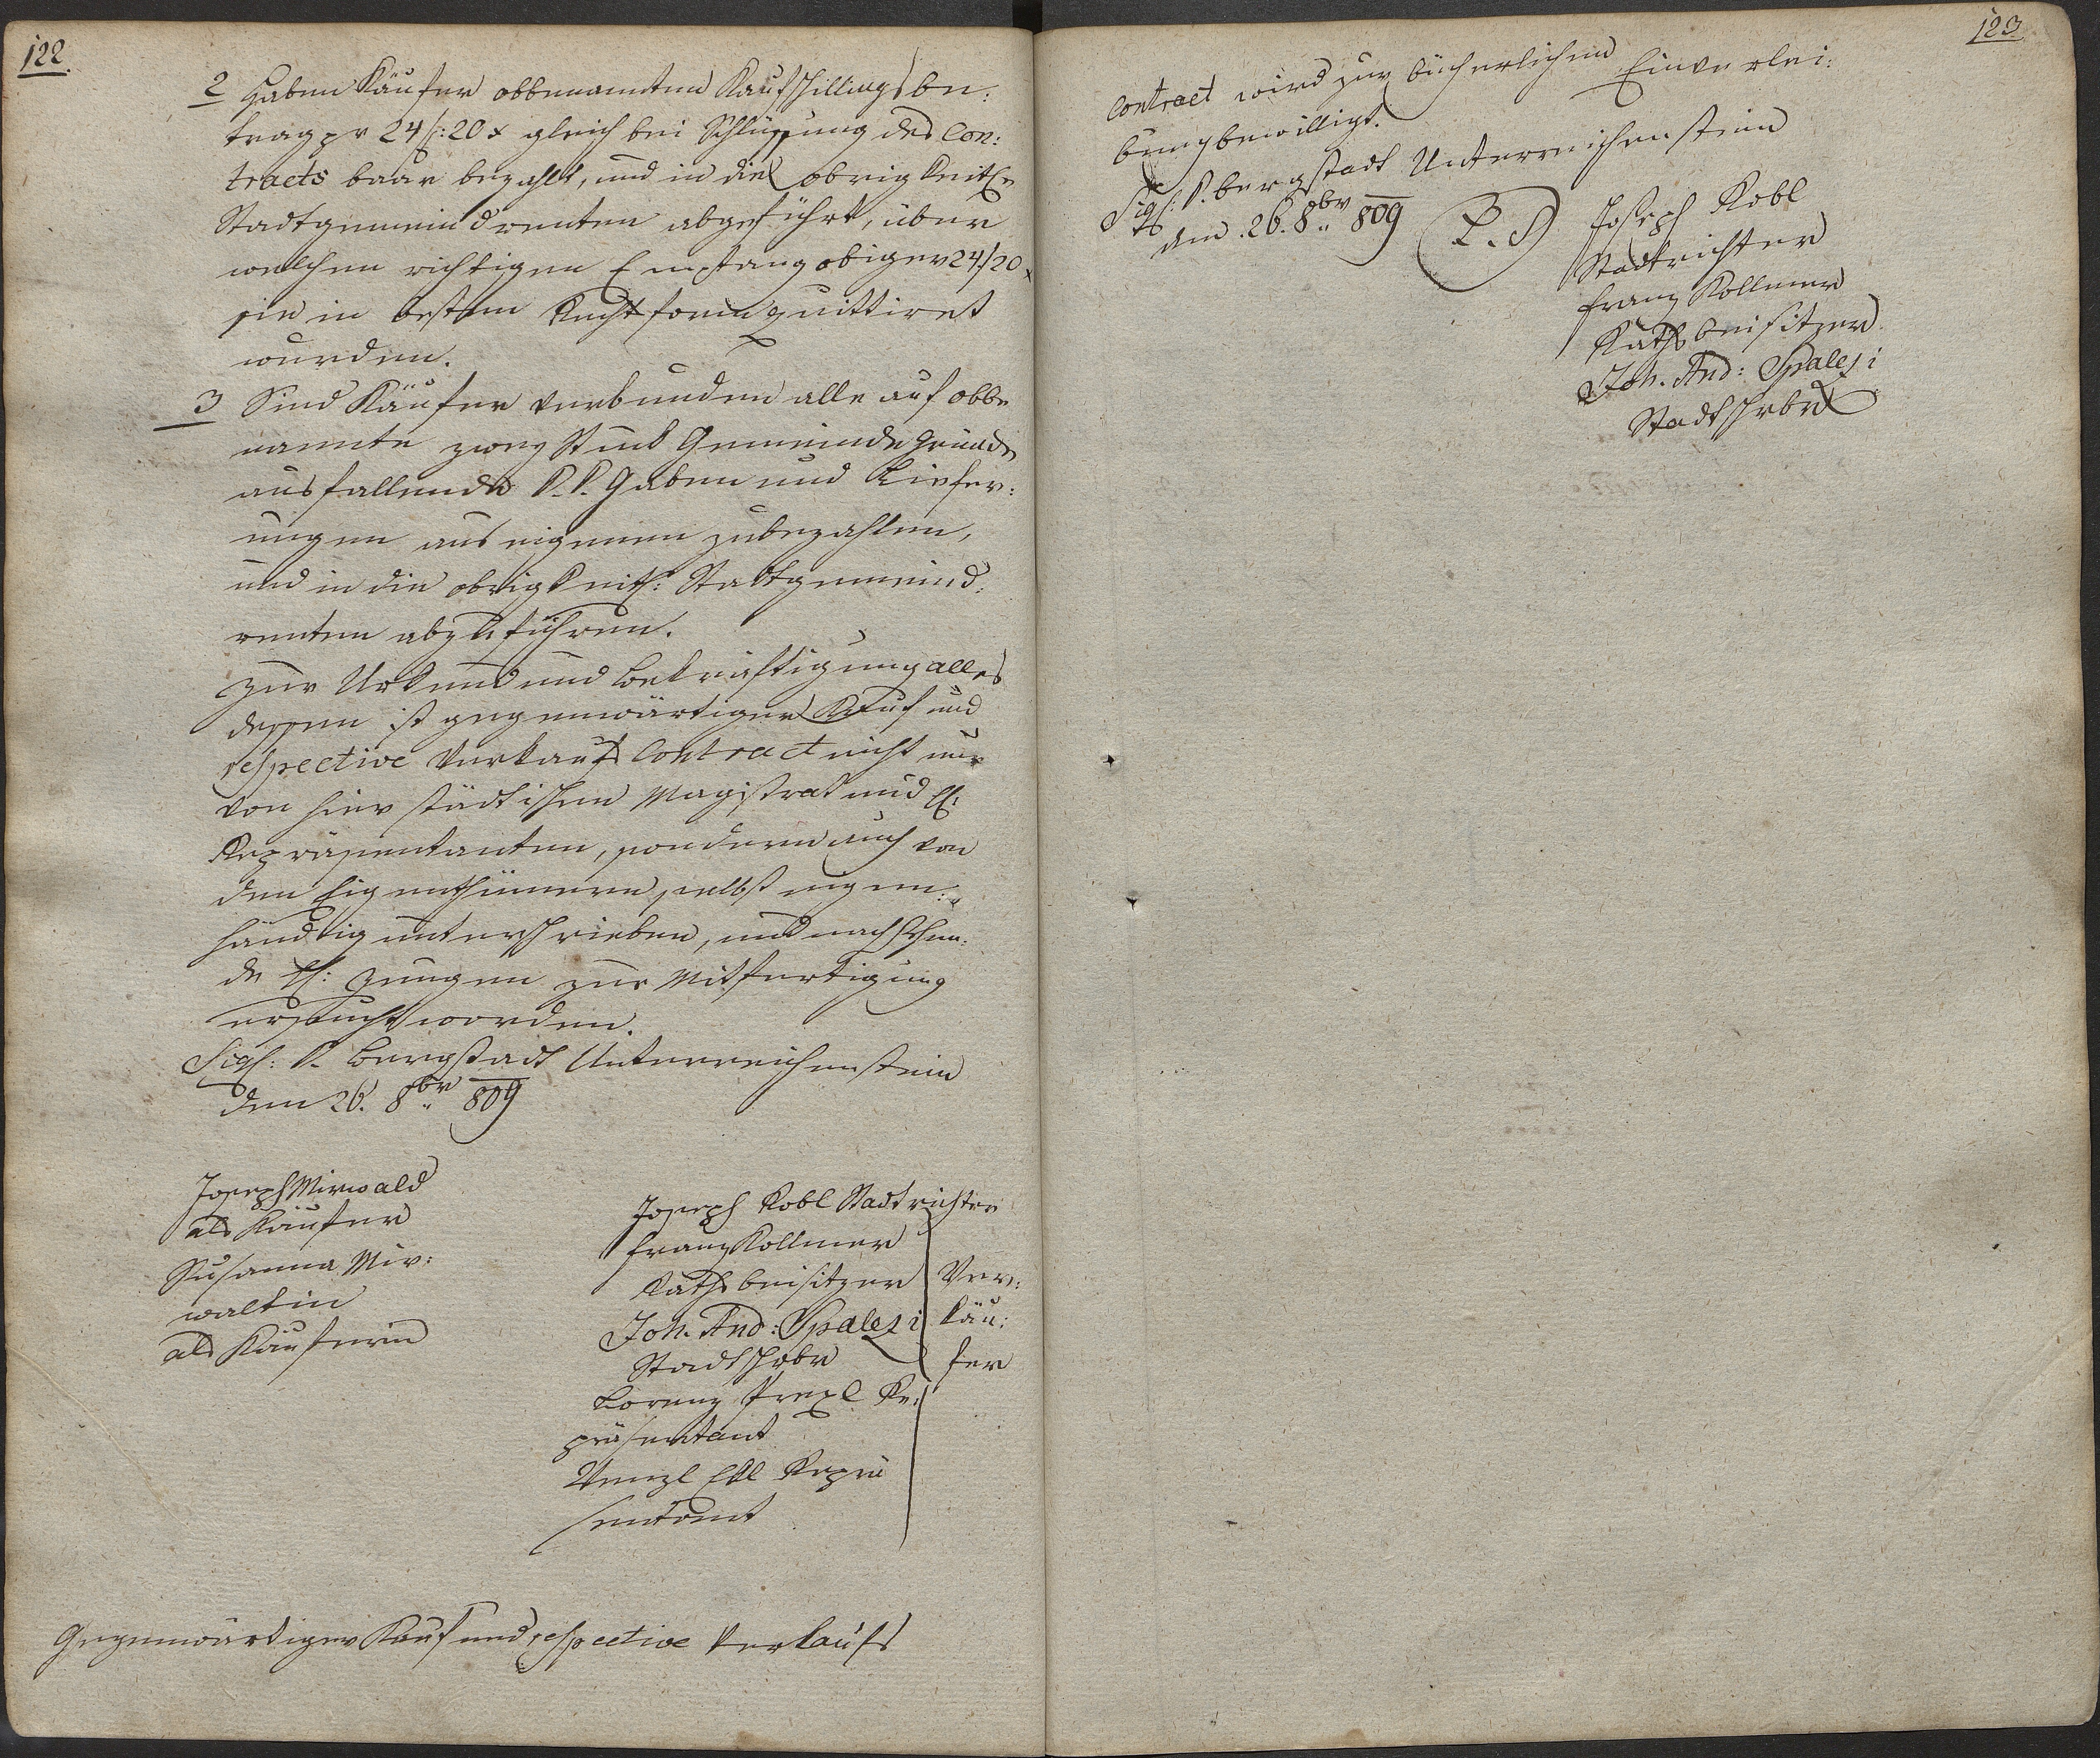 122.
2 Haben Käufer obbenanntem Kaufschillingsbe:
trag pr 24 f: 20 x gleich bei Schlüssung des Con:
tracts baar bezahlt, und in die obrigkeitle
Stadtgemeindrenten abgeführt, über
welchen richtigen Empfang obiger 24 f 20 x
sie in bestem Rechtsform quittiret
wurden.
3 Sind Käufer verbunden alle auf obbe
nannte zwey Stuck Gemeinde Gründe
ausfallende K. K. Gaben und Liefer:
ungen aus eigenem zubezahlen,
und in die obrigkeitl: Stadtgemeind:
renten abzuführen.
Zur Urkund und Bekräftigung alles
dessen ist gegenwärtiger Kauf und
respective Verkaufs Contract nicht nur
von hier städtischen Magistrat und H:
Repräsentanten, sondern auch von
den Eigenthümern selbst eigen:
händig unterschrieben, und nachstehen:
de H: Zeugen zur Mitfertigung
ersucht worden.
Sigl: K. Bergstadt Unterreichenstein
den 26. 8br 809
Joseph Mirwald
als Käufer
Susanna Mir:
waltin
als Käuferin
Joseph Kobl Stadtrichter
Franz Kollmer
Rathsbeisitzer
Joh. And: Spalezi
Stadtschrbr
Lorenz Prexl Re:
präsentant
Wenzl Ekl Reprä
sentant
Ver:
käu:
fer
Gegenwärtiger Kauf und respective Verkaufs
123.
Contract wird zur bücherlichen Einverlei:
bung bewilligt.
Sigl: K. Bergstadt Unterreichenstein
den 26. 8br 809
L. S
Joseph Kobl
Stadtrichter
Franz Kollmer
Rathsbeisitzer
Joh. And: Spalezi
Stadtschrbr